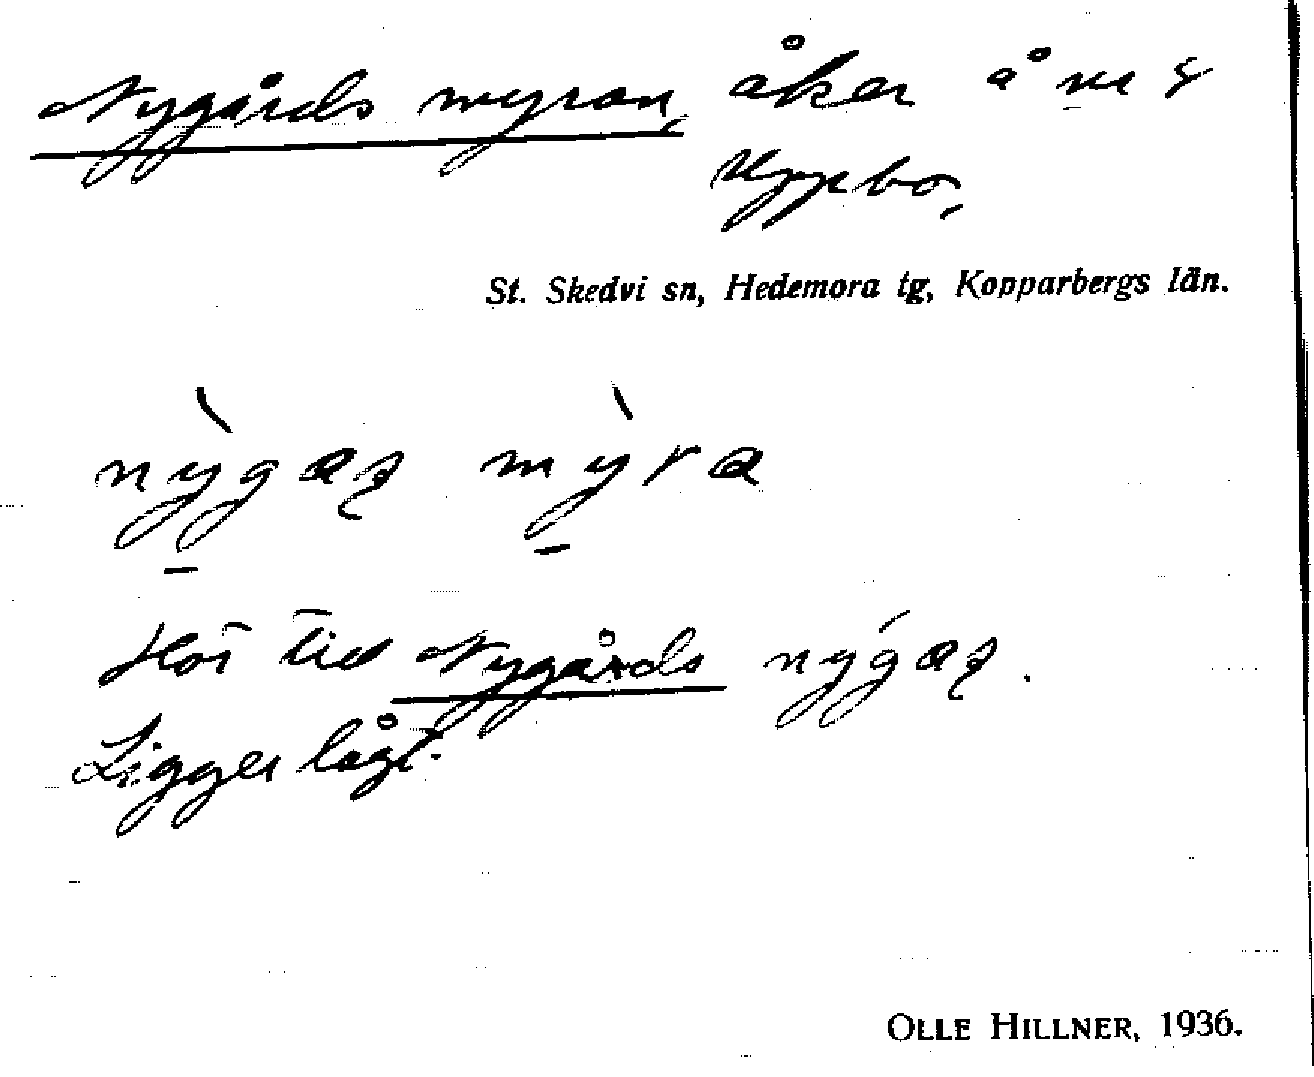 Nygårds myran, åker å nr 8
Uppbo,
St. Skedvi sn, Hedemora tg, Kopparbergs län.
nỳgaʂ mỳra
Hör till Nygårds nýgaʂ.
Ligger lågt.
OLLE HILLNER, 1936.